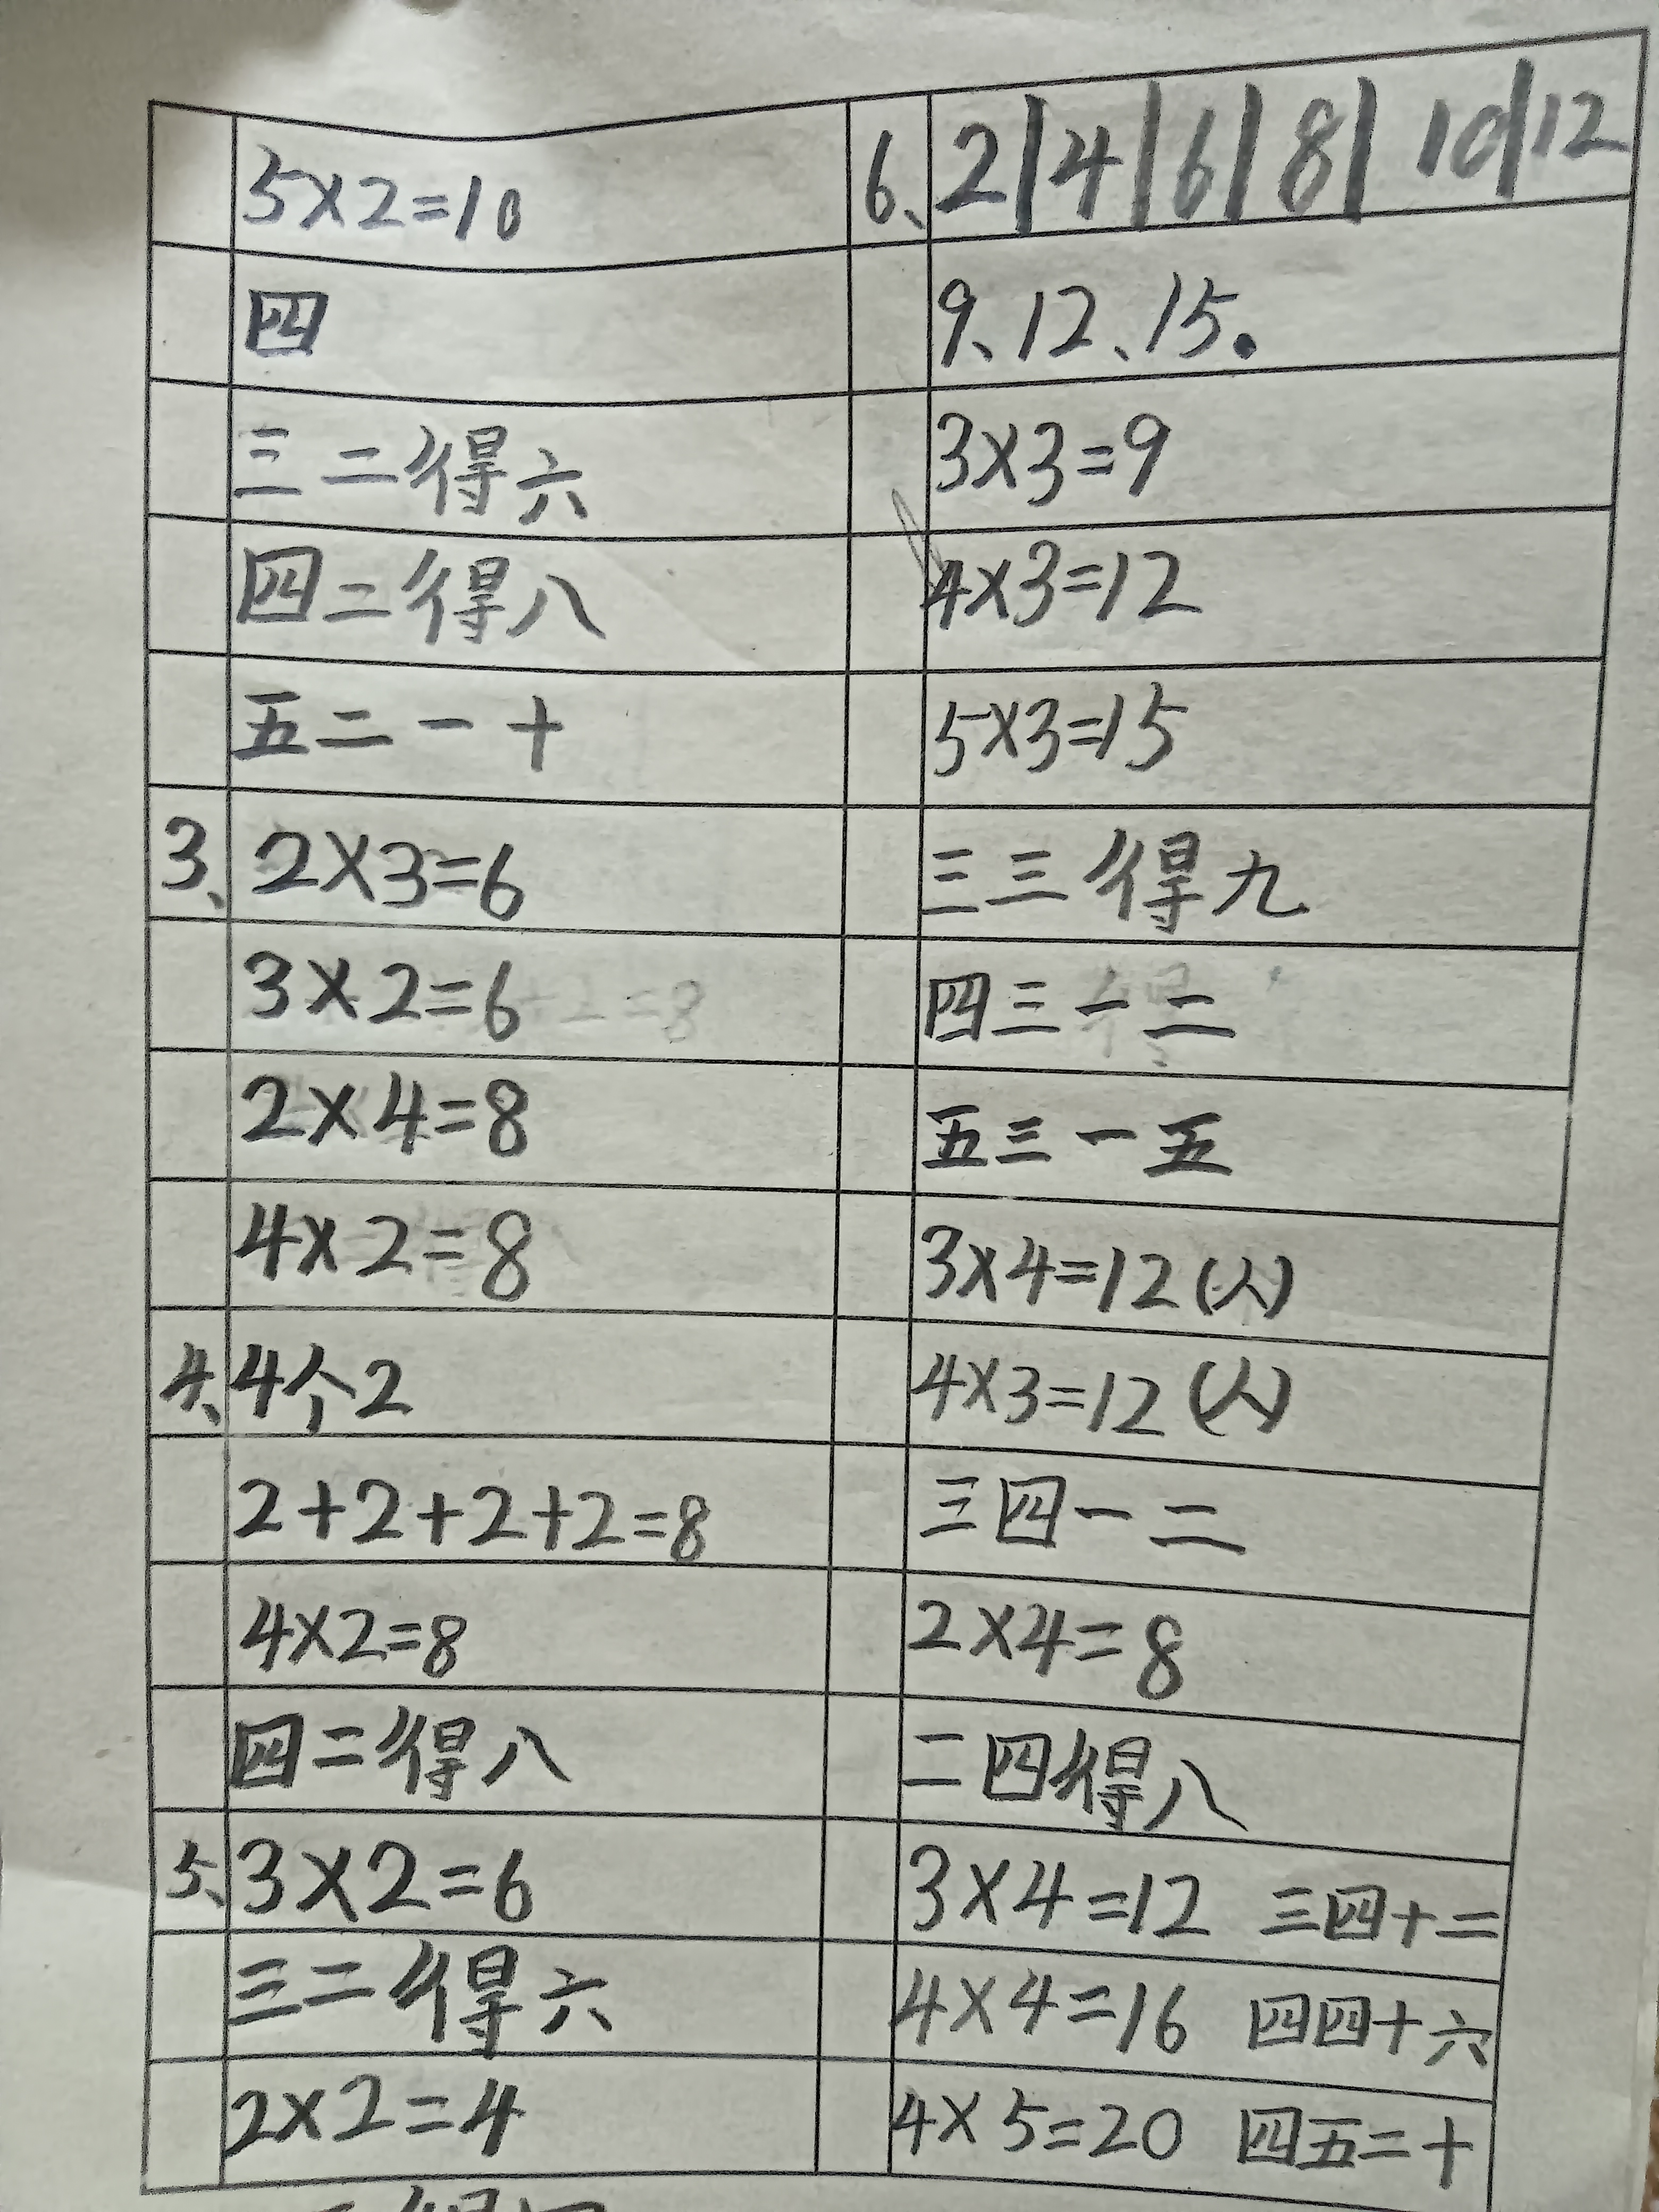 5×2=10
四
三二得六
四二得八
五二一十
3、2×3=6
3×2=6
2×4=8
4×2=8
4、4个2
2+2+2+2=8
4×2=8
四二得八
5、3×2=6
三二得六
2×2=4
6、2|4|6|8|10|12
9、12、15。
3×3=9
4×3=12
5×3=15
三三得九
四三一二
五三一五
3×4=12(人)
4×3=12(人)
三四一二
2×4=8
二四得八
3×4=12 三四十二
4×4=16 四四十六
4×5=20 四五二十